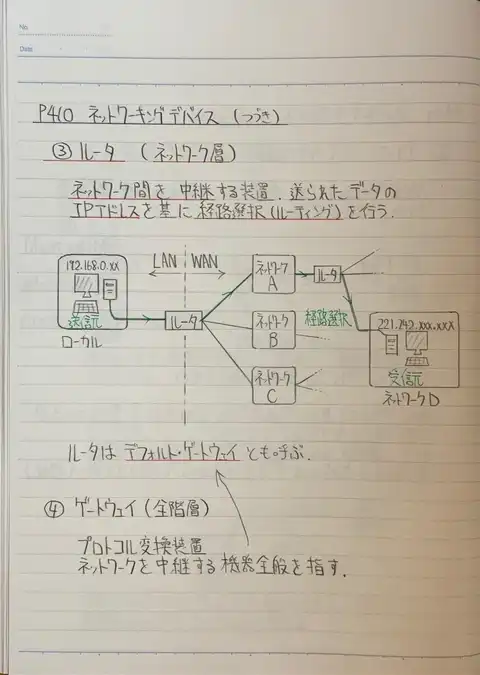 No.
Date
P410 ネットワーキングデバイス (つづき)
③ ルータ (ネットワーク層)
ネットワーク間を中継する装置. 送られたデータの
IPアドレスを基に経路選択(ルーティング)を行う.
192.168.0.XX
送信元
ローカル
LAN
WAN
ルータ
ネットワーク
A
ネットワーク
B
ネットワーク
C
ルータ
経路選択
221.242.XXX.XXX
受信元
ネットワークD
ルータはデフォルト・ゲートウェイとも呼ぶ.
④ ゲートウェイ (全階層)
プロトコル変換装置
ネットワークを中継する機器全般を指す.